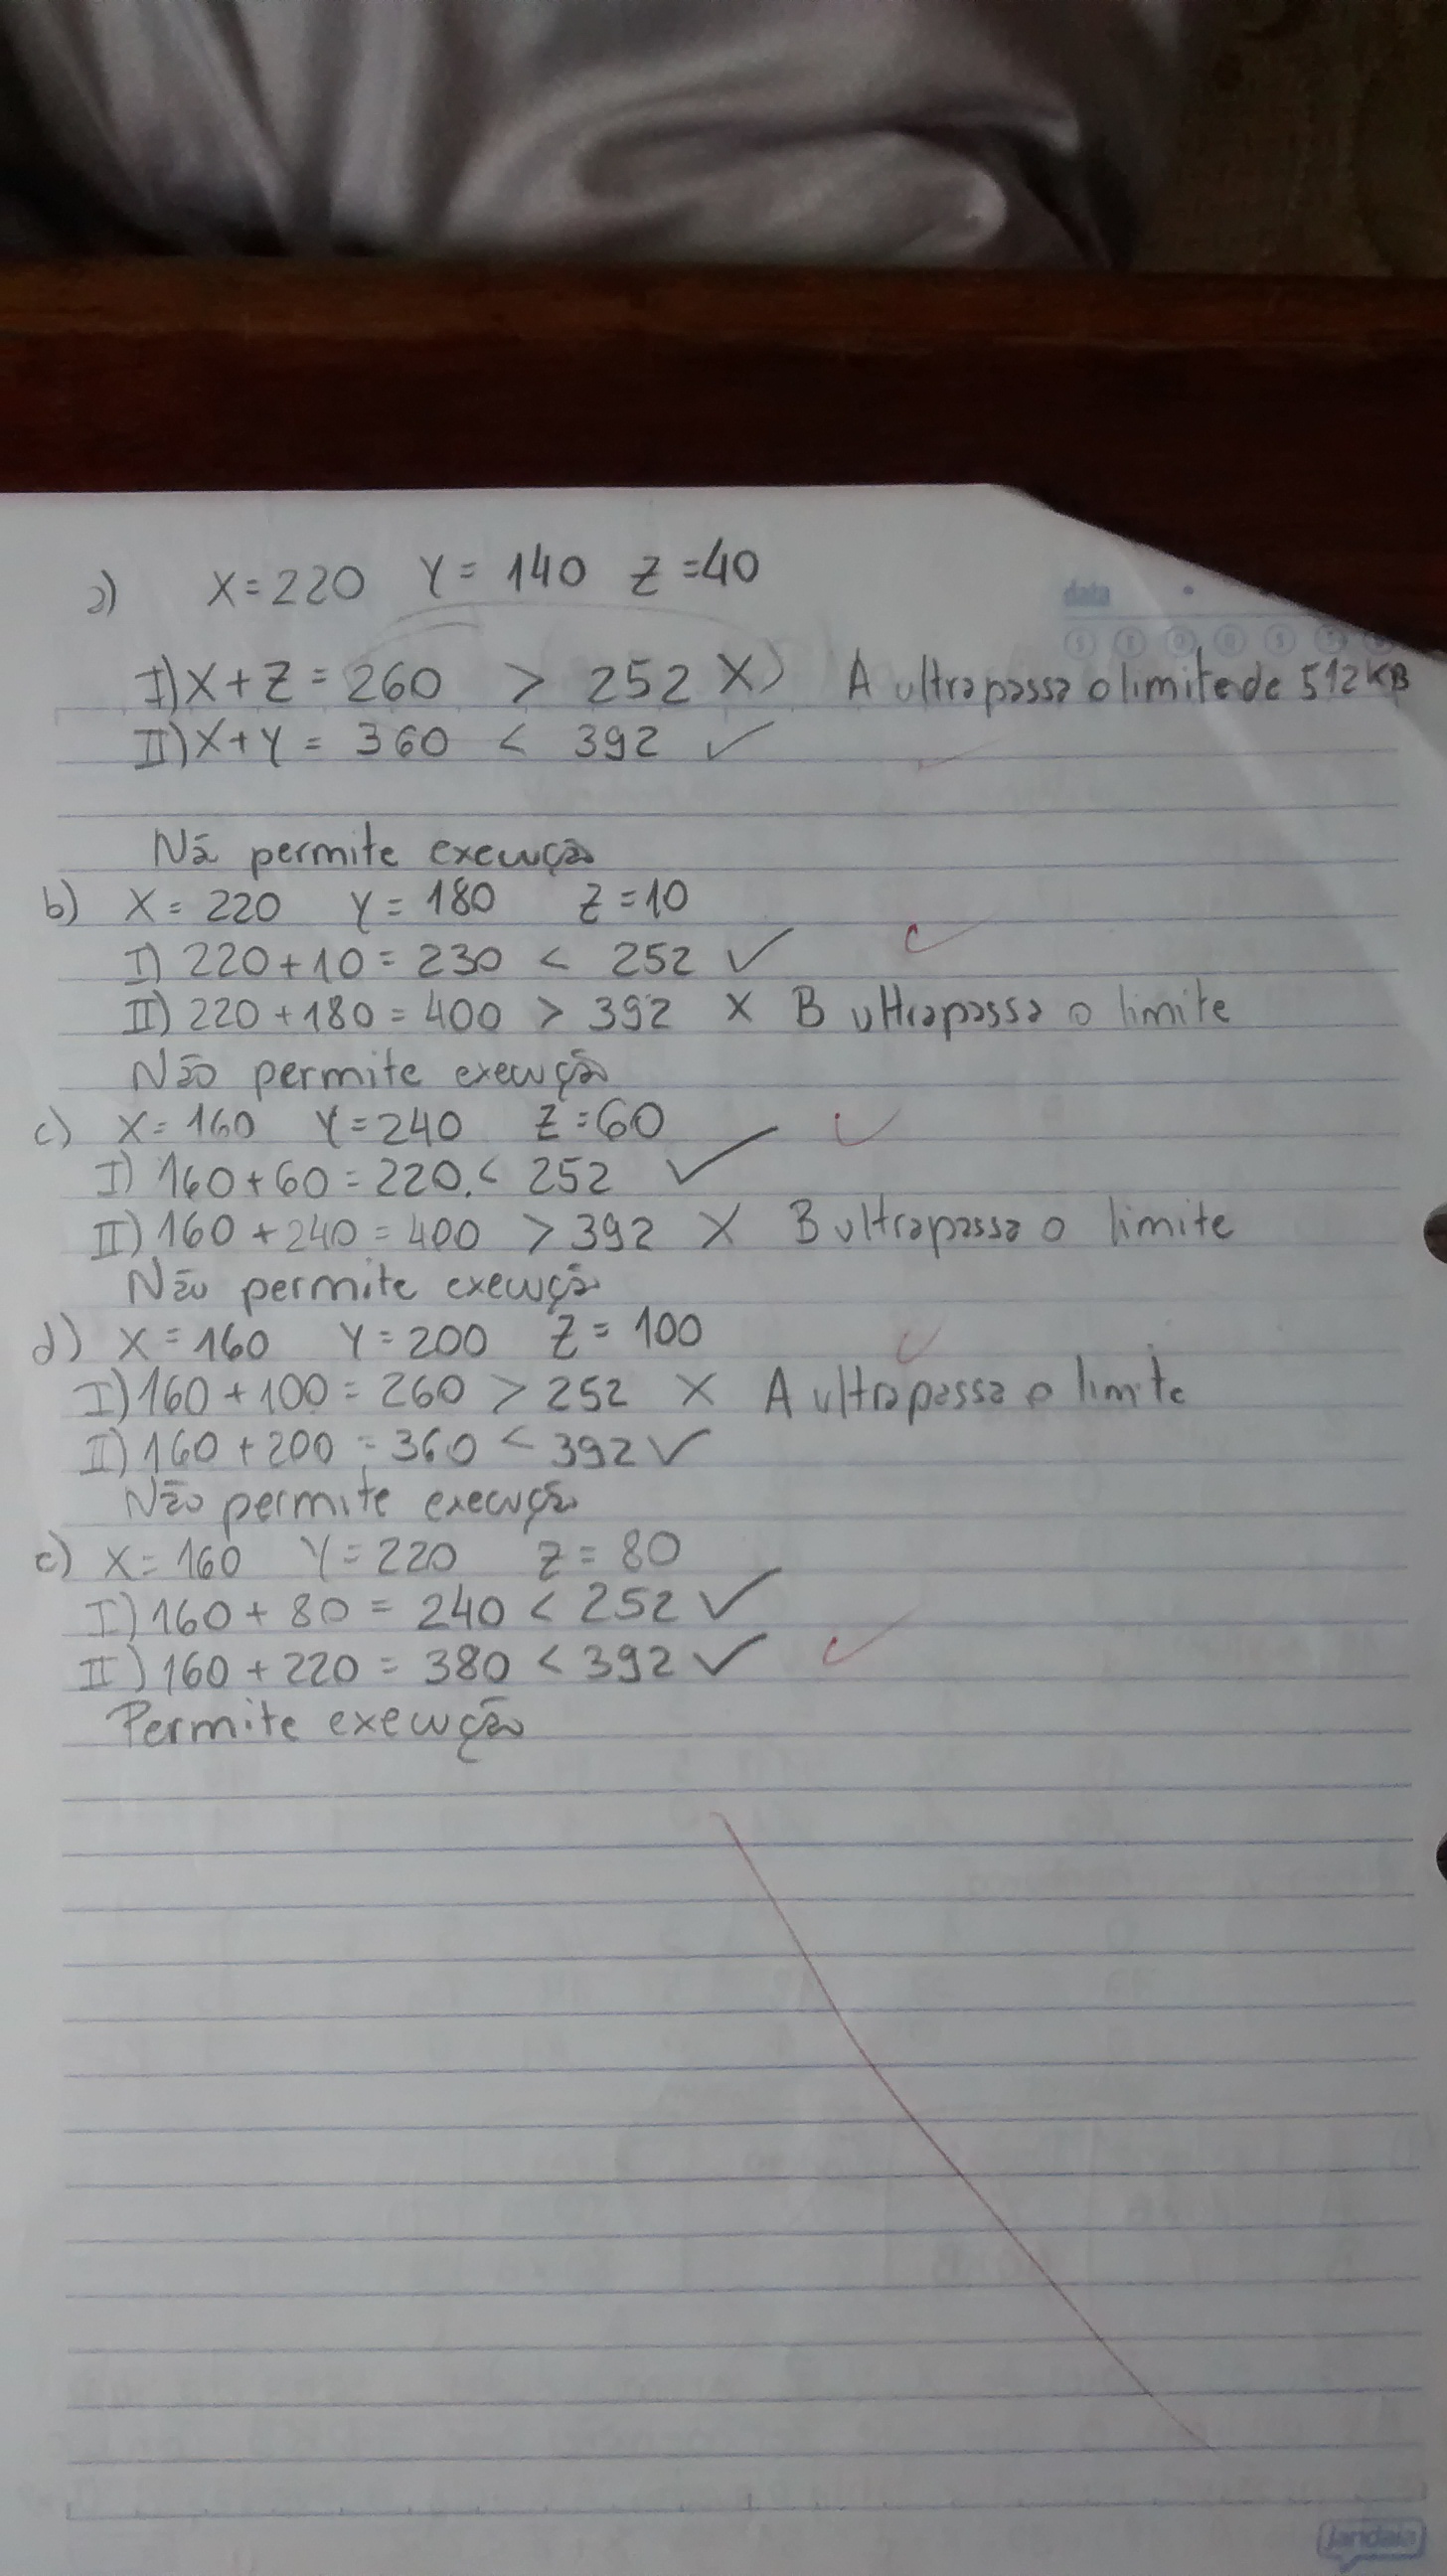 a) X=220 Y=140 Z=40
data
I) X+Z=260 > 252 X) A ultrapassa o limite de 512KB
II) X+Y=360 < 392 ✓
Nã permite execução
b) X=220 Y=180 Z=10
I) 220+10=230 < 252 ✓
II) 220+180=400 > 392 X B ultrapassa o limite
Não permite execução
c) X=160 Y=240 Z=60
I) 160+60=220.< 252 ✓
II) 160+240=400 > 392 X B ultrapassa o limite
Não permite execução
d) X=160 Y=200 Z=100
I) 160+100=260 > 252 X A ultrapassa o limite
II) 160+200=360 < 392 ✓
Não permite execução
e) X=160 Y=220 Z=80
I) 160+80=240 < 252 ✓
II) 160+220=380 < 392 ✓
Permite execução
jandaia